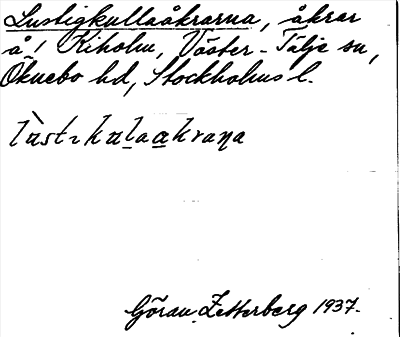 Lustigkullaåkrarna, åkrar
å / Kiholm, Väster-Tälje sn,
Öknebo hd, Stockholms l.
Göran Zetterberg 1937.